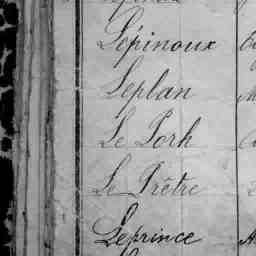 Lépinoux
Leplan
Le Porh
Le Prêtre
Leprince